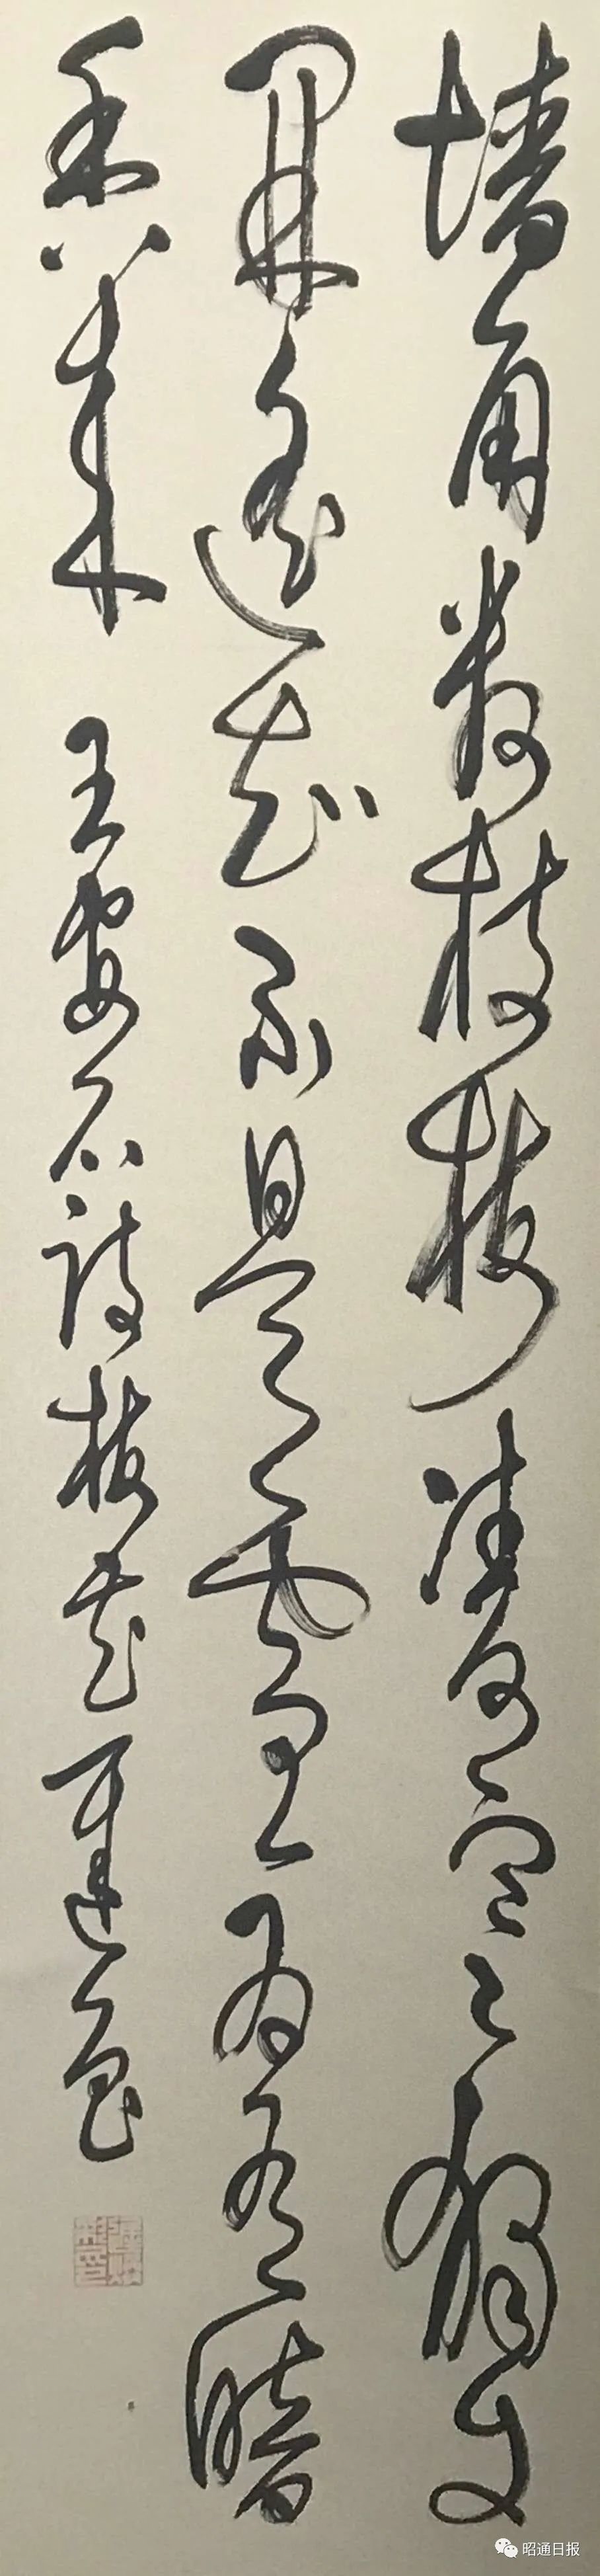 墙角数枝梅凌寒独自
开遥知不是雪为有暗
香来 王安石诗梅花
昭通日报